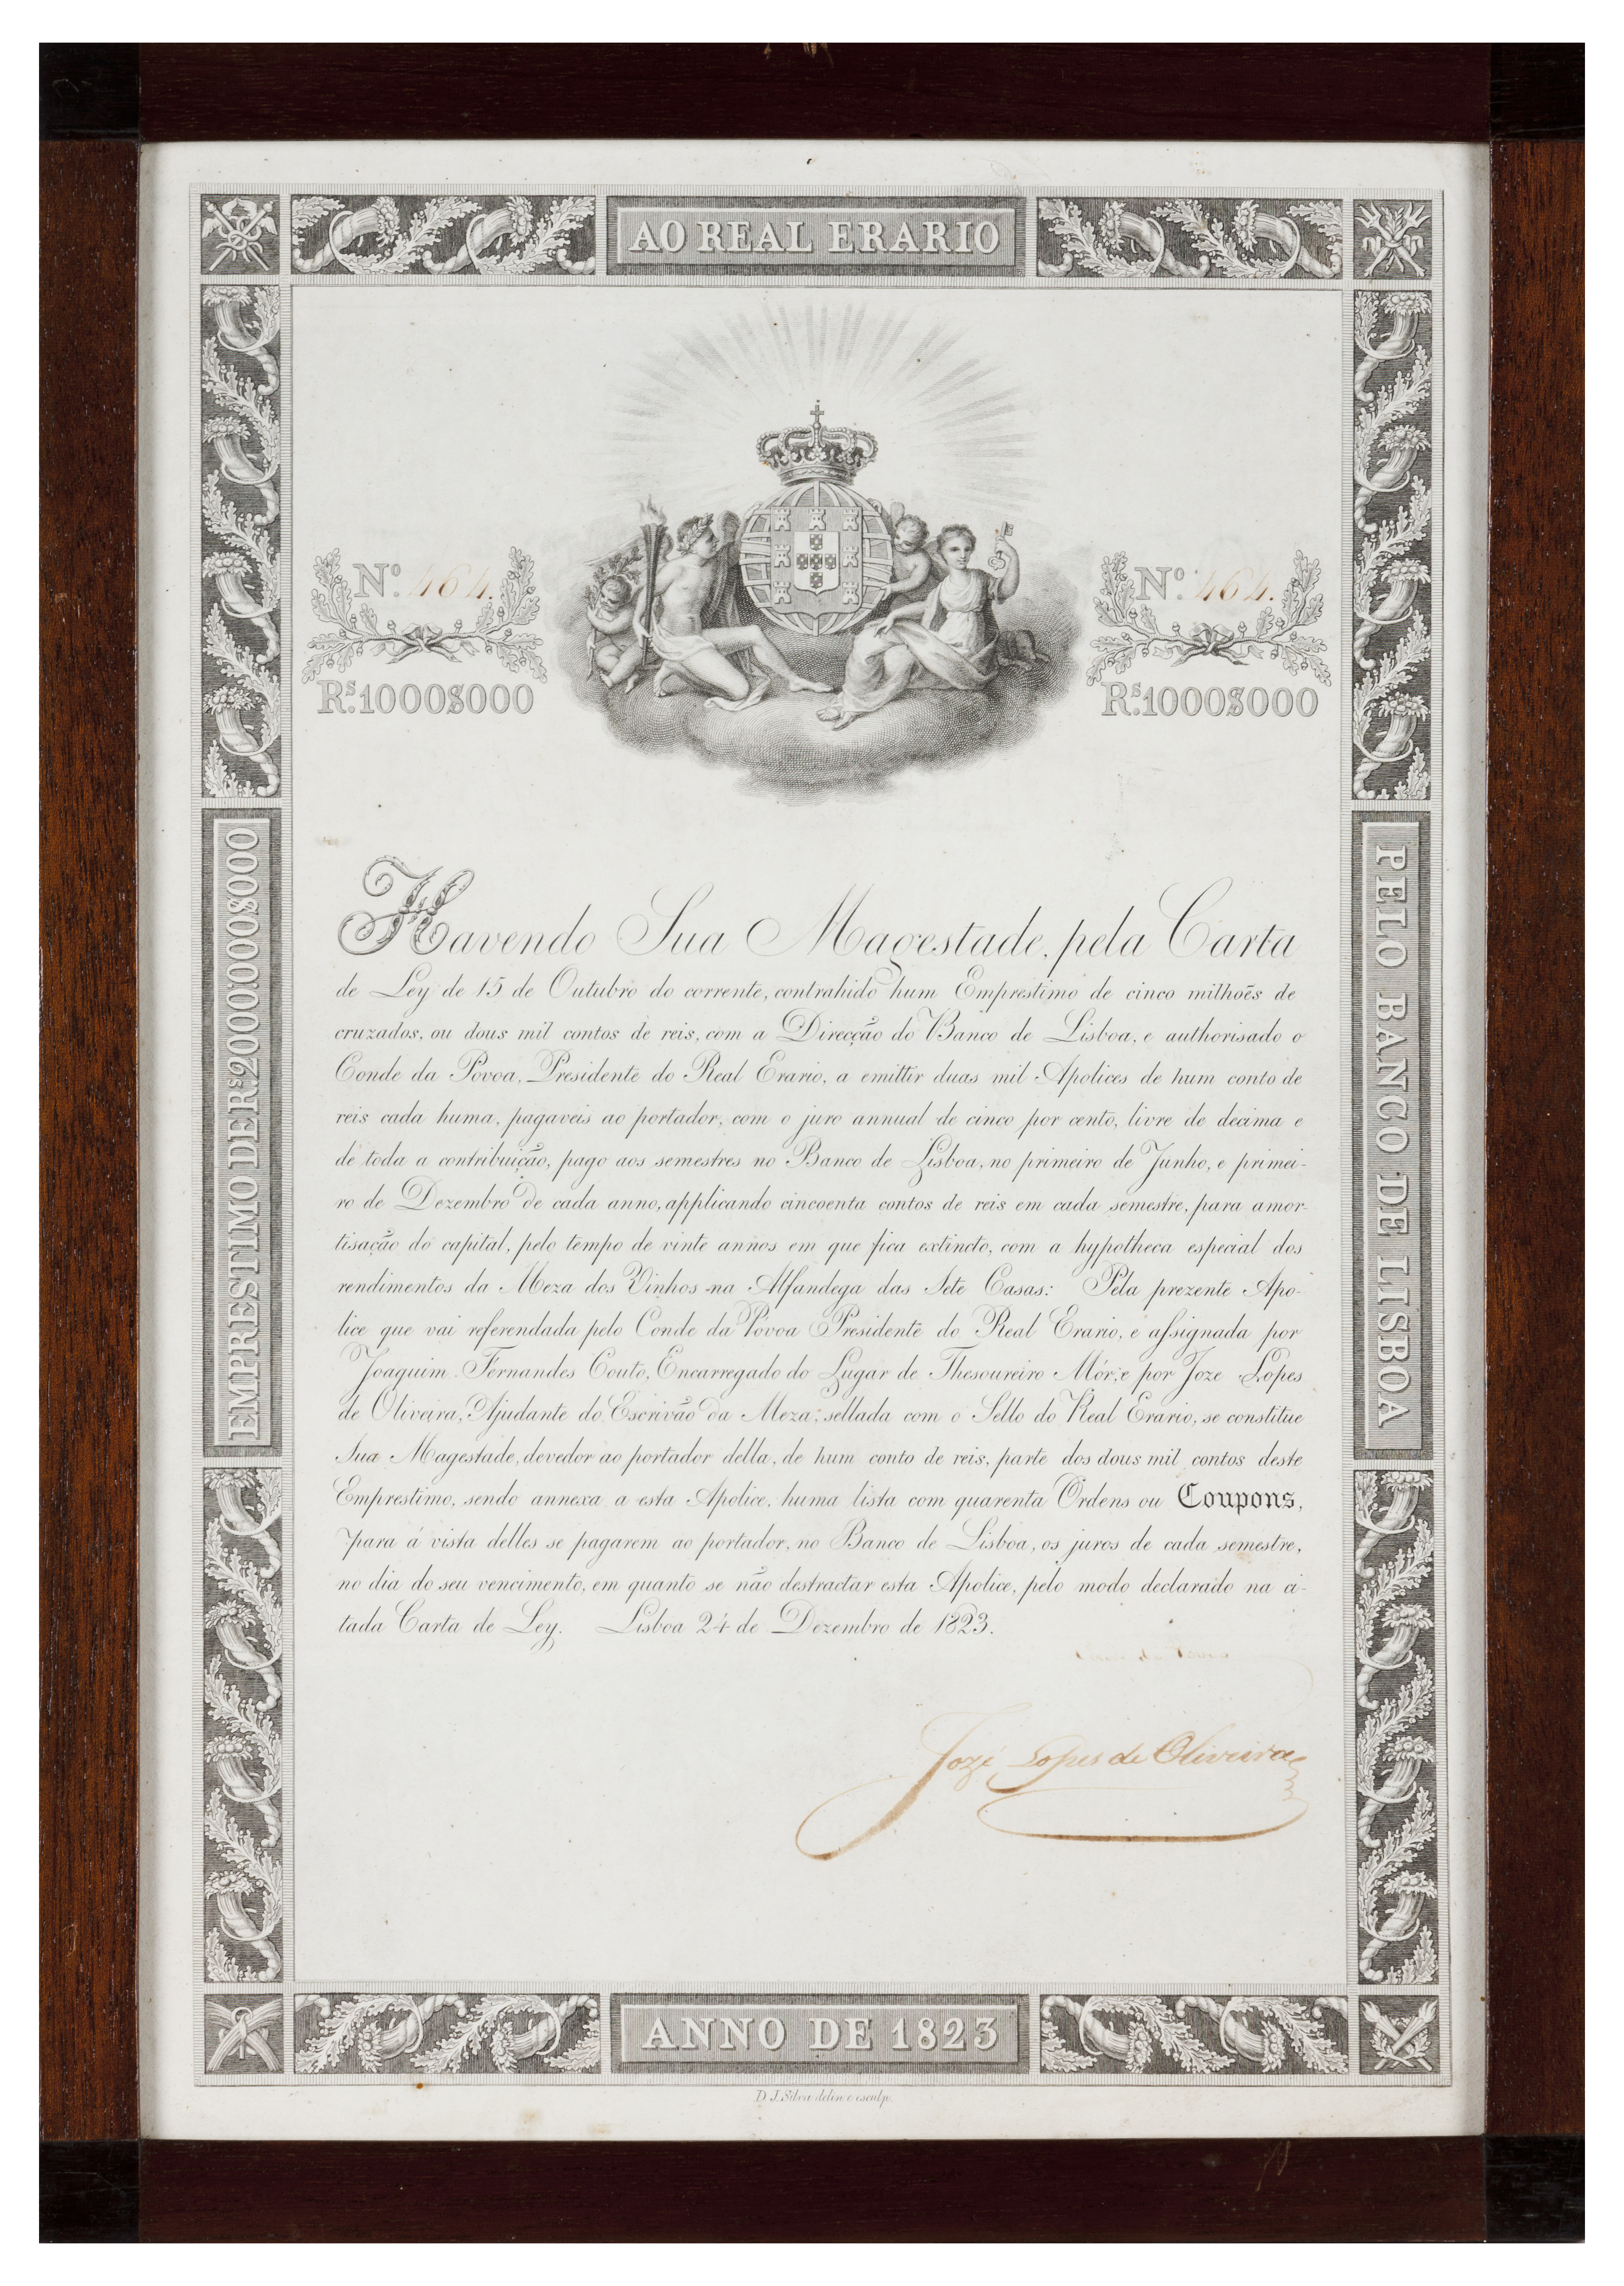 AO REAL ERARIO
Nº 464.
Nº 464.
Rs. 1000$000
Rs. 1000$000
EMPRESTIMO DE Rs. 2000:000$000
PELO BANCO DE LISBOA
Havendo Sua Magestade, pela Carta
de Ley de 15 de Outubro do corrente, contrahido hum Emprestimo de cinco milhoẽs de
cruzados, ou dous mil contos de reis, com a Direcção do Banco de Lisboa, e authorisado o
Conde da Póvoa, Presidente do Real Erario, a emittir duas mil Apolices de hum conto de
reis cada huma, pagaveis ao portador, com o juro annual de cinco por cento, livre de decima e
de toda a contribuição, pago aos semestres no Banco de Lisboa, no primeiro de Junho, e primei-
ro de Dezembro de cada anno, applicando cincoenta contos de reis em cada semestre, para amor-
tisação do capital, pelo tempo de vinte annos em que fica extincto, com a hypotheca especial dos
rendimentos da Meza dos Vinhos na Alfandega das Sete Casas: Pela prezente Apo-
lice que vai referendada pelo Conde da Póvoa Presidente do Real Erario, e assignada por
Joaquim Fernandes Couto, Encarregado do Lugar de Thesoureiro Mór, e por Joze Lopes
de Oliveira, Ajudante do Escrivão da Meza; sellada com o Sello do Real Erario, se constitue
Sua Magestade, devedor ao portador della, de hum conto de reis, parte dos dous mil contos deste
Emprestimo, sendo annexa a esta Apolice, huma lista com quarenta Ordens ou Coupons,
para á vista delles se pagarem ao portador, no Banco de Lisboa, os juros de cada semestre,
no dia do seu vencimento, em quanto se não destractar esta Apolice, pelo modo declarado na ci-
tada Carta de Ley. Lisboa 24 de Dezembro de 1823.
Jozé Lopes de Oliveira
ANNO DE 1823
D. J. Silva delin. e esculp.